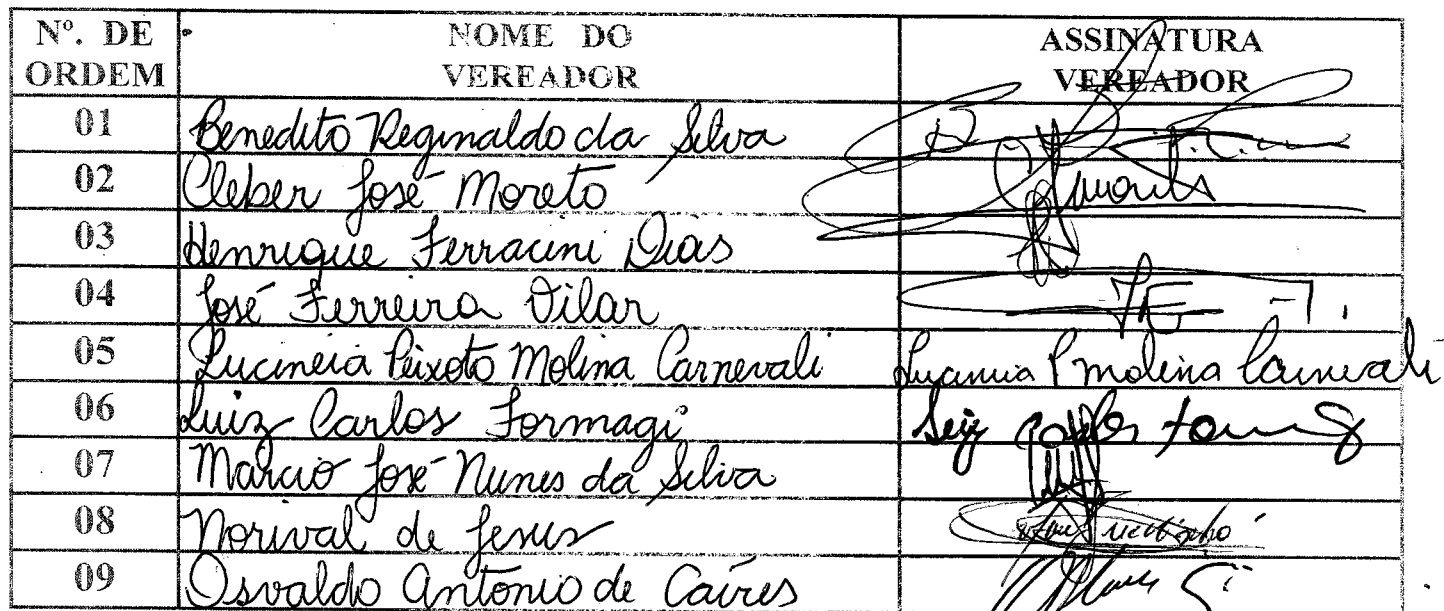 Nº. DE ORDEM NOME DO VEREADOR ASSINATURA VEREADOR
01 Benedito Reginaldo da Silva
02 Cleber José Moreto
03 Henrique Ferracini Dias
04 José Ferreira Vilar
05 Lucineia Peixoto Molina Carnevali Lucineia P Molina Carnevali
06 Luiz Carlos Formagi Luiz Carlos
07 Marcio José Nunes da Silva
08 Norival de Jesus
09 Osvaldo Antonio de Caíres